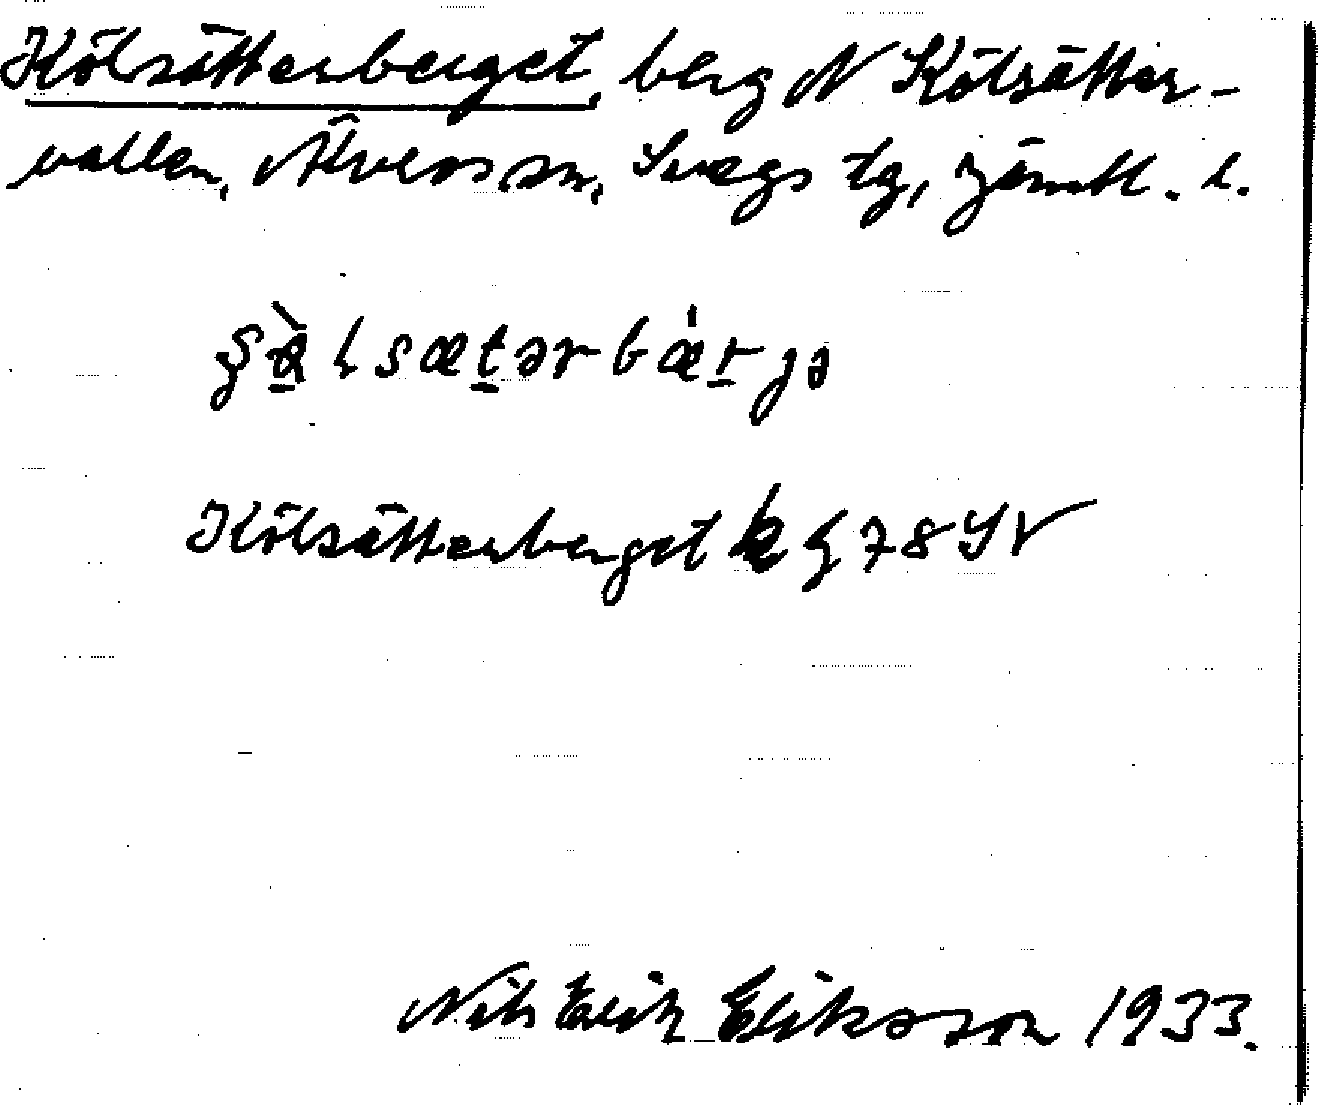 Kölsätterberget, berg N Kölsätter-
vallen, Älvros sn, Svegs tg, Jämtl. l.
Kölsätterberget k g 78 SV
Nils Erik Eliksson 1933.